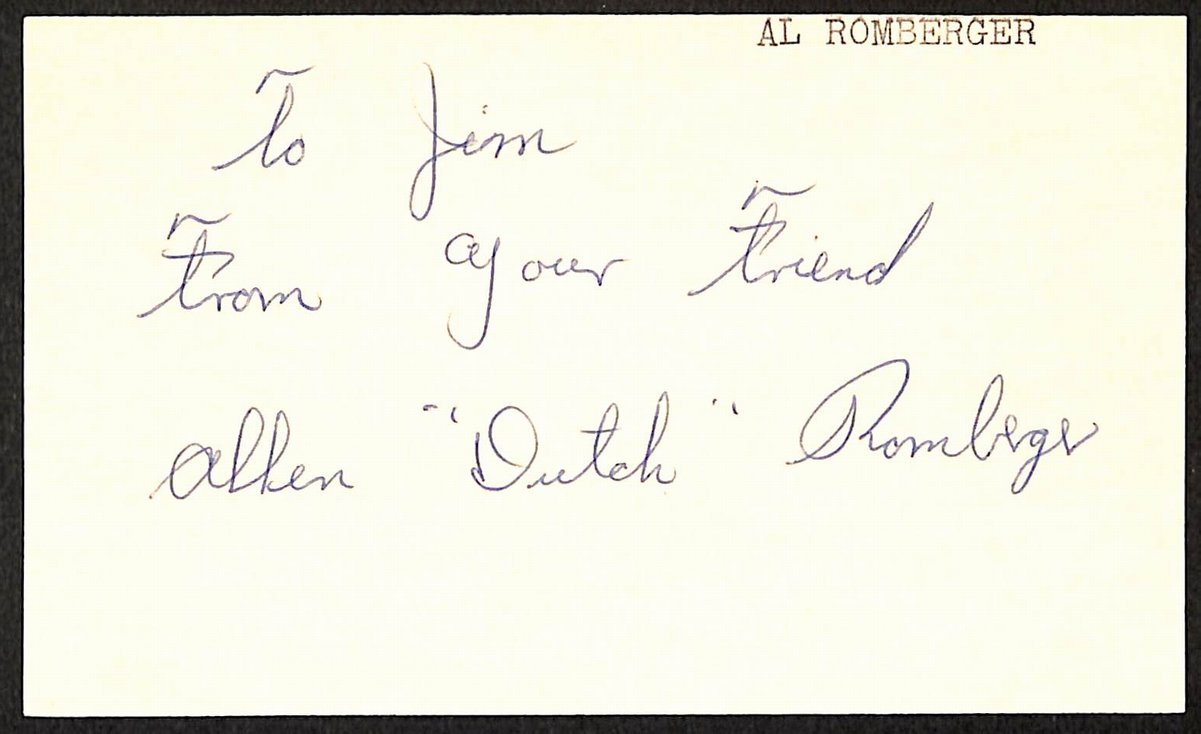 AL ROMBERGER
To Jim
From Your Friend
Allen "Dutch" Romberger